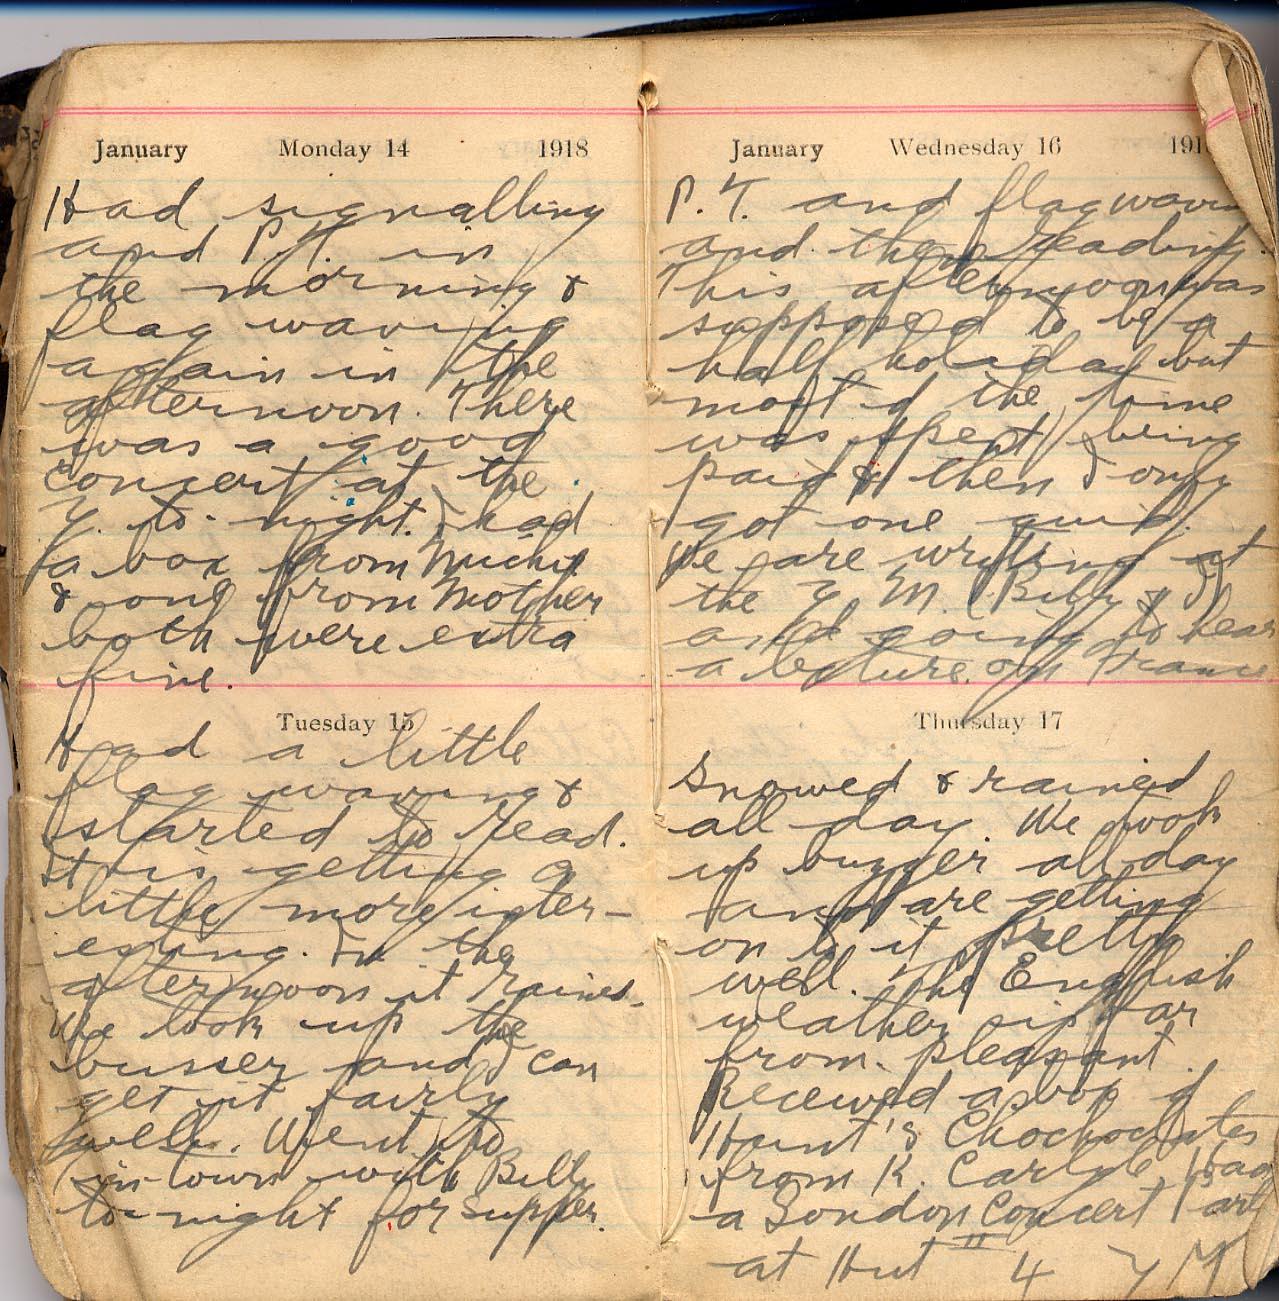 January Monday 14 1918
Had signalling
and P.T. in
the morning &
flag waving
again in the
afternoon. There
was a good
concert at the
Y. to-night. I had
a box from
& one from Mother
both were extra
fine.
Tuesday 15
Had a little
flag waving &
started to read.
It is getting a
little more inter-
esting. In the
afternoon it rained.
We took up the
buzzer and I can
get it fairly
well. Went to
in town with Billy
to-night for supper.
January Wednesday 16 191
P.T. and flag wavin
and then reading.
This afternoon was
supposed to be a
half holiday but
most of the time
was spent being
paid & then I only
got one quid.
We are writing at
the Y M. Billy & I
and going to hear
a lecture on France
Thursday 17
Snowed & rained
all day. We took
up buzzer all day
and are getting
on to it pretty
well. The English
weather is far
from pleasant.
Received a box of
Hunt's Chochoclates
from K. Carlyle. Had
a London Concert Part
at Hut 4 Y M